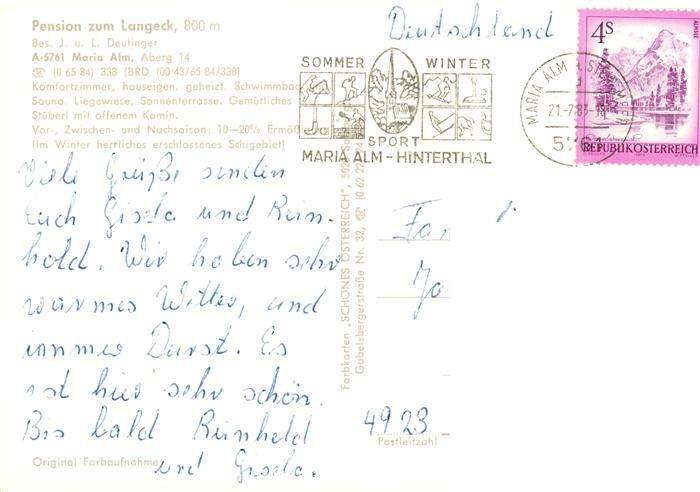 Pension zum Langeck, 800 m
Bes. J. u. L. Deutinger
A-5761 Maria Alm, Aberg 14
☏ (0 65 84) 338 (BRD (00 43765 84/338)
Komfortzimmer, hauseigen. geheizt. Schwimmbad
Sauna. Liegewiese, Sonnenterrasse. Gemütliches
Stüberl mit offenem Kamin.
Vor-, Zwischen- und Nachsaison: 10—20% Ermäß
(Im Winter herrliches erschlossenes Schigebiet)
Viele Grüße senden
Euch Gisela und Rein-
hold. Wir haben sehr
warmes Wetter, und
immer Durst. Es
ist hier sehr schön.
Bis bald Reinhold
und Gisela.
Original Farbaufnahme
Farbkarten „SCHÖNES ÖSTERREICH", 5020
Gabelsbergerstraße Nr. 32, ☏ (0 62 22)
Deutschland
SOMMER WINTER
SPORT
MARIA ALM - HINTERTHAL
MARIA ALM A. ST. MEER
21.-7.83
4S
ALMSEE
REPUBLIK ÖSTERREICH
Fa
Jo
4923
Postleitzahl